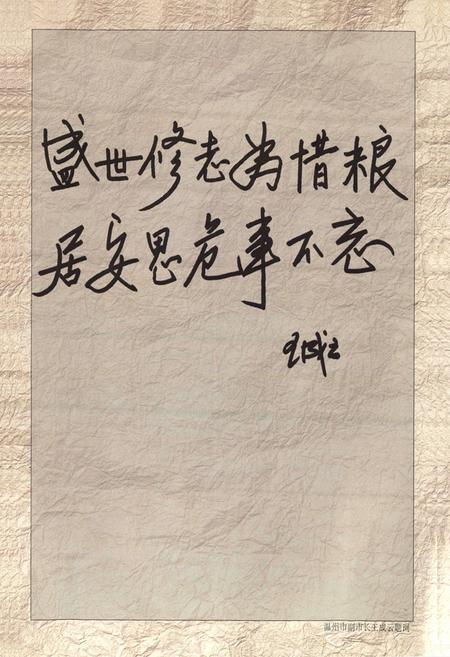 盛世修志为惜粮
居安思危事不忘
王成云
温州市副市长王成云题词